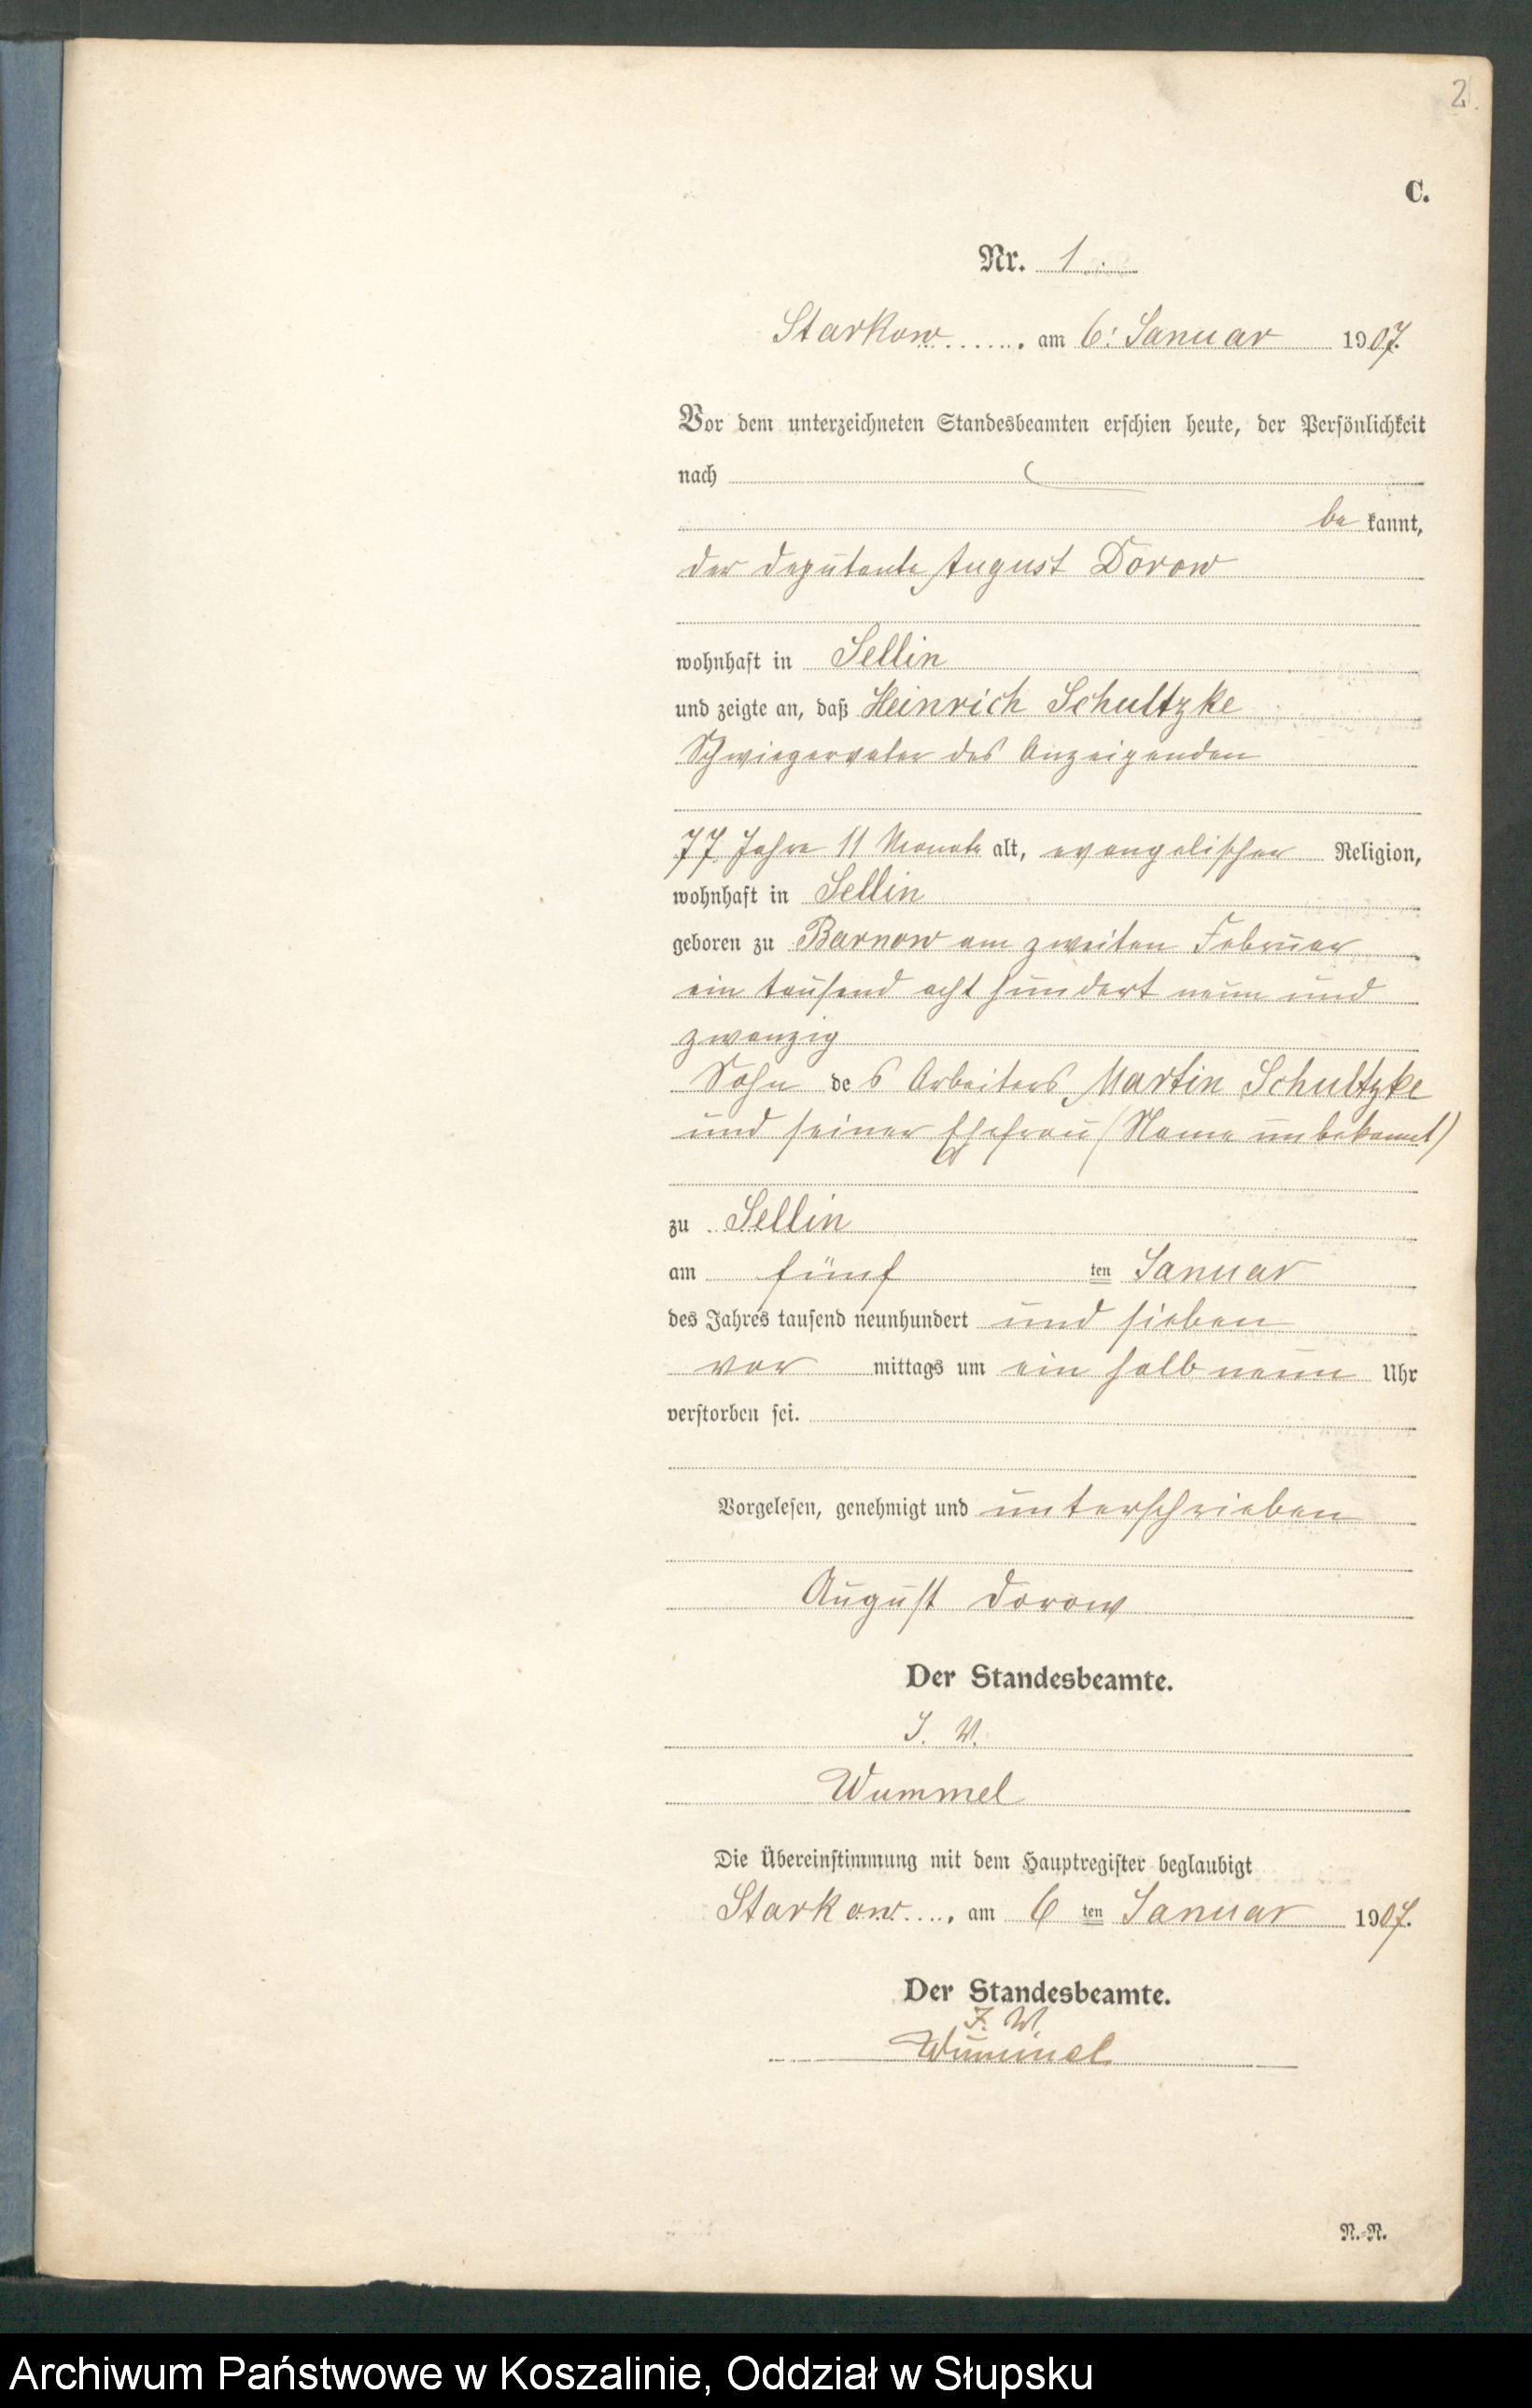 2.
C.
Nr. 1.
Starkow, am 6. Januar 1907.
Vor dem unterzeichneten Standesbeamten erschien heute, der Persönlichkeit
nach
be kannt,
der Deputante August Dorow
wohnhaft in Sellin
und zeigte an, daß Heinrich Schultzke
Schwiegervater des Anzeigenden
77 Jahre 11 Monate alt, evangelischer Religion,
wohnhaft in Sellin
geboren zu Barnow am zweiten Februar
ein tausend acht hundert neun und
zwanzig
Sohn des Arbeiters Martin Schultzke
und seiner Ehefrau (Name unbekannt)
zu Sellin
am fünf ten Januar
des Jahres tausend neunhundert und sieben
vor mittags um ein halb neun Uhr
verstorben sei.
Vorgelesen, genehmigt und unterschrieben
August Dorow
Der Standesbeamte.
J. V.
Wummel
Die Übereinstimmung mit dem Hauptregister beglaubigt
Starkow, am 6 ten Januar 1907.
Der Standesbeamte.
J. V.
Wummel
N.-N.
Archiwum Państwowe w Koszalinie, Oddział w Słupsku